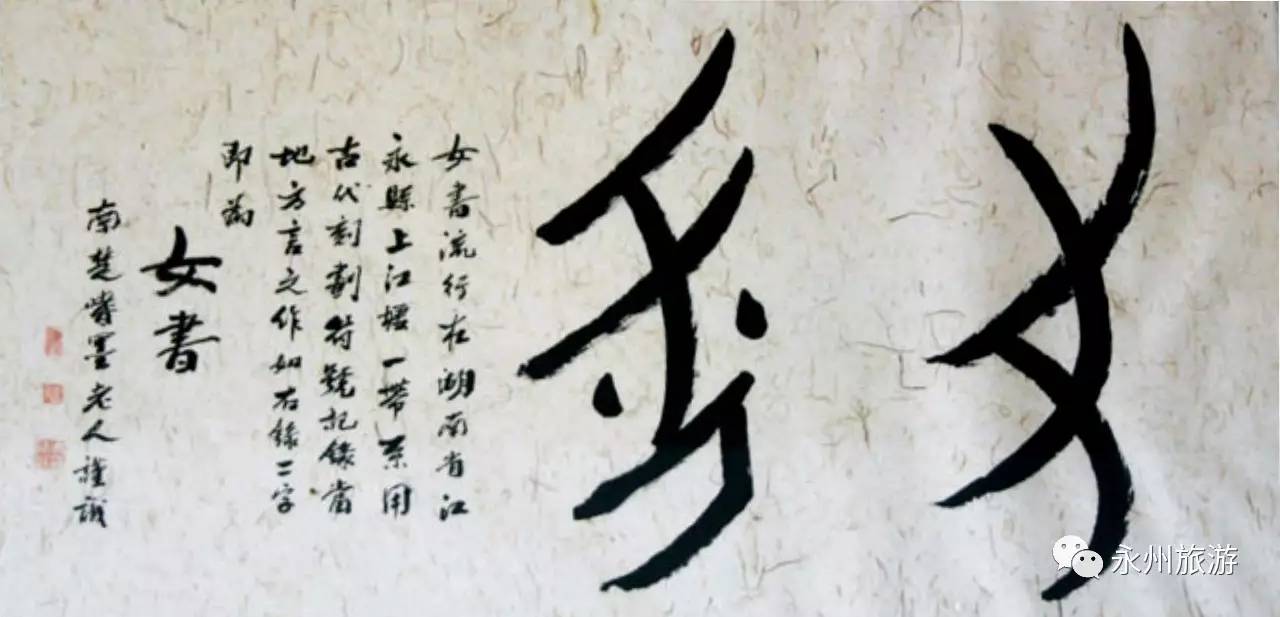 女書流行在湖南省江
永縣上江墟一帶系用
古代刻劃符號記錄當
地方言之作如右錄二字
即為
女書
南楚墨老人謹識
永州旅游